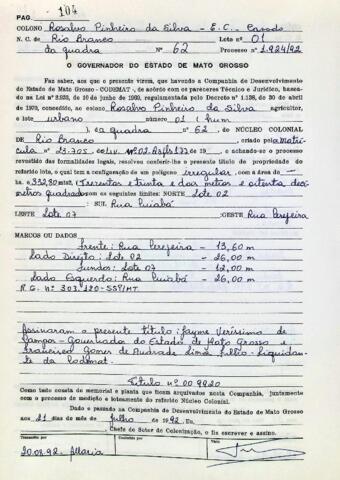 PAG. 104
COLONO Rosalvo Pinheiro da Silva - E.C. Casado
N. C. de Rio Branco Lote nº 01
da quadra Nº 62 Processo nº 1.924/92
O GOVERNADOR DO ESTADO DE MATO GROSSO
Faz saber, aos que o presente virem, que havendo a Companhia de Desenvolvimento
do Estado de Mato Grosso - CODEMAT -, de acôrdo com os pareceres Técnico e Jurídico, basea-
das na Lei nº 3.925, de 19 de junho de 1960, regulamentada pelo Decreto nº 1.138, de 30 de abril
de 1970, concedeu, ao colono Rosalvo Pinheiro da Silva agricultor,
o lote urbano número 01 (hum
), da quadra nº 62, do NÚCLEO COLONIAL
DE Rio Branco, criado pela Matrí
cula nº 23.705 do Liv. Nº 02. A fls 172 19 e achando-se o processo
revestido das formalidades legais, resolveu conferir-lhe o presente título de propriedade do
referido lote, o qual tem a configuração de um polígono irregular, com a área de
ha. e 332,80 mts2, (Trezentos e trinta e dois metros e oitenta decí
metros quadrados com os seguintes limites: NORTE Lote 02
SUL Rua Cuiabá
LESTE Lote 07 OESTE Rua Perfeira
MARCOS OU DADOS
Frente: Rua Perfeira - 13,60 m
Lado Direito: Lote 02 - 26,00 m
Fundos: Lote 07 - 12,00 m
Lado Esquerdo: Rua Cuiabá - 26,00 m
R.G. Nº 303.120-SSP/MT
Assinaram o presente título: Jayme Veríssimo de
Campos - Governador do Estado de Mato Grosso e
Francisco Gomes de Andrade Lima Filho - Liquidan
te da Codemat.
Título nº 009920
Como tudo consta de memorial e planta que ficam arquivados nesta Companhia, juntamente
com o processo de medição e loteamento do referido Núcleo Colonial.
Dado e passado na Companhia de Desenvolvimento do Estado de Mato Grosso
aos 21 dias do mês de Julho de 1992. Eu,
, Chefe do Setor de Colonização, o fiz escrever e assino.
Transcrito por Conferido por Visto
20.08.92.